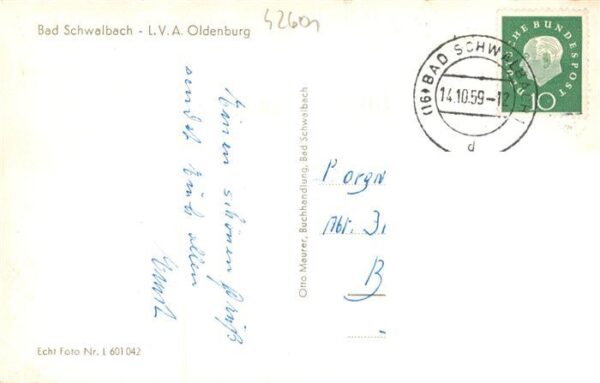 42601
Bad Schwalbach - L.V.A. Oldenburg
DEUTSCHE BUNDESPOST
10
(16) BAD SCHWALBACH
14.10.59-12
d
Einen schönen Gruß
sendet Euch allen
Otto Maurer, Buchhandlung, Bad Schwalbach
Abt. 3,
B
Echt Foto Nr. L 601 042